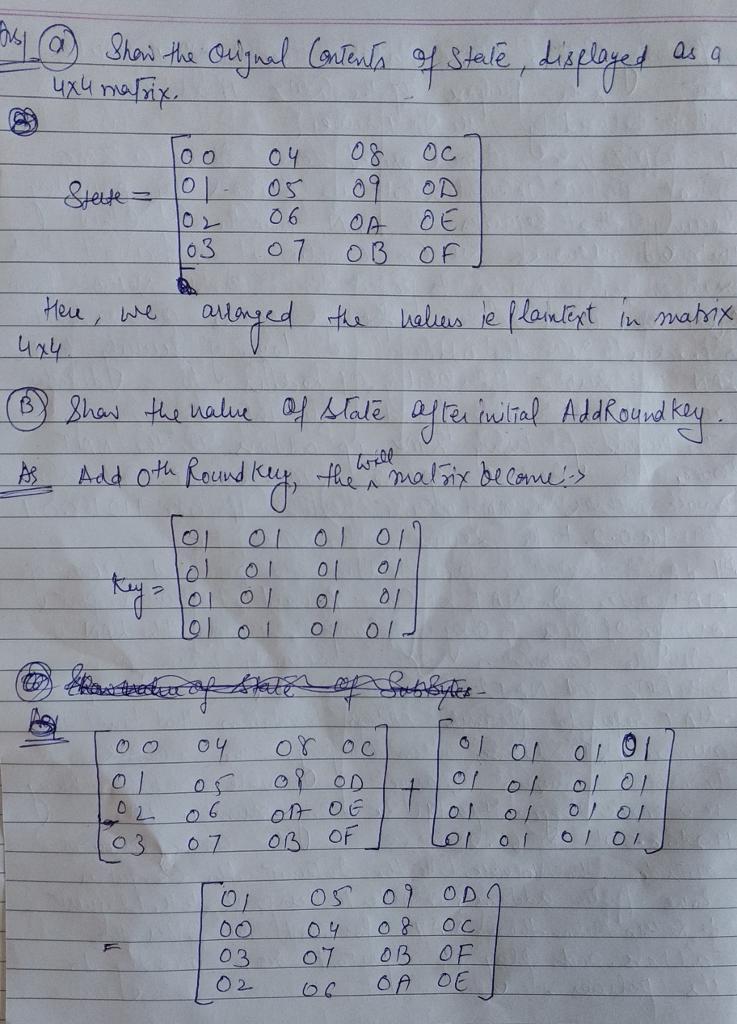 Ans (a) Show the Orignal Contents of State, displayed as a
4x4 matrix.
00 04 08 0C
State = 01 05 09 0D
02 06 0A 0E
03 07 0B 0F
Here, we arranged the values ie Plaintext in matrix
4x4
(B) Show the value of State after initial AddRoundkey.
As Add 0th Roundkey, the will matrix become:->
01 01 01 01
01 01 01 01
Key = 01 01 01 01
01 01 01 01
Show value of State of SubBytes
As
00 04 08 0C 01 01 01 01
01 05 09 0D + 01 01 01 01
02 06 0A 0E 01 01 01 01
03 07 0B 0F 01 01 01 01
01 05 09 0D
= 00 04 08 0C
03 07 0B 0F
02 06 0A 0E